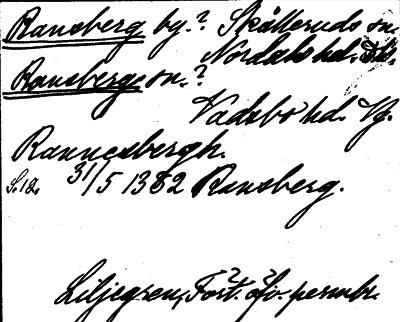 Ransberg by.? Skålleruds sn.
Nordals hd. Ds.
Ransbergs sn.?
Vadsbo hd. Vg.
Rannesbergh.
S. 12. 31/5 1382 Ransberg.
Liljegren, Fört. öfv. permbr.